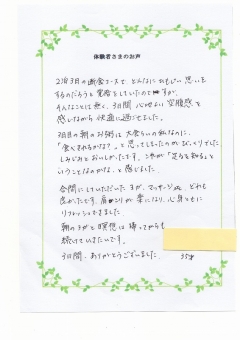 体験者さまのお声
2泊3日の断食コースで、どんなにひもじい思いを
するのだろうと覚悟をしていたのですが、
そんなことは無く、3日間 心地よい空腹感を
感じながら快適に過ごせました。
3日目の朝のお粥は、大食らいの私なのに、
「食べきれるかな?」と思ってしまったのがびっくりでした。
しみじみとおいしかったです。これが「足るを知る」と
いうことなのかな、と感じました。
合間にしていただいたヨガ、マッサージetc、どれも
良かったです。肩コリが楽になり、心身ともに
リフレッシュできました。
朝のヨガと瞑想は帰ってからも
続けていきたいです。
3日間、ありがとうございました。